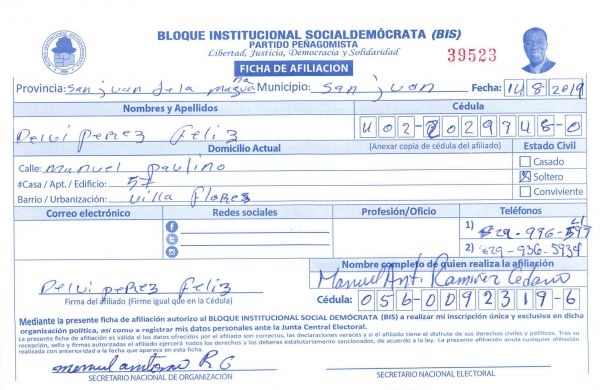 BLOQUE INSTITUCIONAL SOCIALDEMÓCRATA (BIS)
PARTIDO PEÑAGOMISTA
Libertad, Justicia, Democracia y Solidaridad
39523
FICHA DE AFILIACION
Provincia: San juan de la maguana Municipio: San juan Fecha: 14/8/2019
Nombres y Apellidos Cédula
Delvi perez feliz 402-2029748-0
Domicilio Actual (Anexar copia de cédula del afiliado) Estado Civil
Calle: Manuel paulino Casado
#Casa / Apt. / Edificio: 57 Soltero
Barrio / Urbanización: Villa flores Conviviente
Correo electrónico Redes sociales Profesión/Oficio Teléfonos
1) 829-996-
2) 829-936-5934
Nombre completo de quien realiza la afiliación
Delvi perez feliz Manuel Ant. Ramirez Cedano
Firma del afiliado (Firme igual que en la Cédula) Cédula: 056-0092319-6
Mediante la presente ficha de afiliación autorizo al BLOQUE INSTITUCIONAL SOCIAL DEMÓCRATA (BIS) a realizar mi inscripción única y exclusiva en dicha
organización política, así como a registrar mis datos personales ante la Junta Central Electoral.
La presente ficha de afiliación es válida si los datos ofrecidos por el afiliado son correctos, las declaraciones veraces y si el afiliado disfruta de sus derechos civiles y políticos. Tras su
recepción, sello y firmas autorizadas el afiliado ejercerá todos los derechos y los deberes estatutariamente sancionados, de acuerdo a la ley. La presente afiliación anula cualquier afiliación
realizada con anterioridad a la fecha que aparece en esta ficha.
manuel antonio R G
SECRETARIO NACIONAL DE ORGANIZACIÓN SECRETARIO NACIONAL ELECTORAL